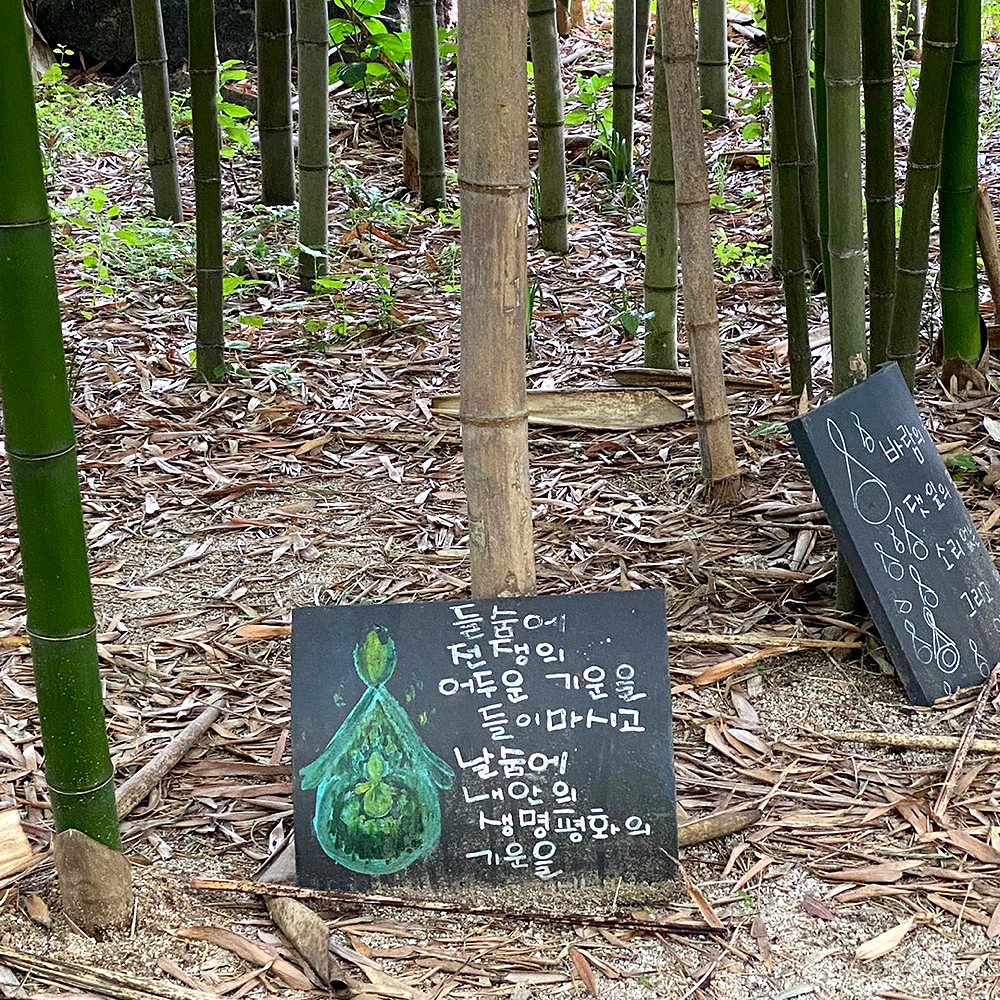 들숨에
전쟁의
어두운 기운을
들이마시고
날숨에
내안의
생명평화의
기운을
바람의
댓잎의
소리없
그리고